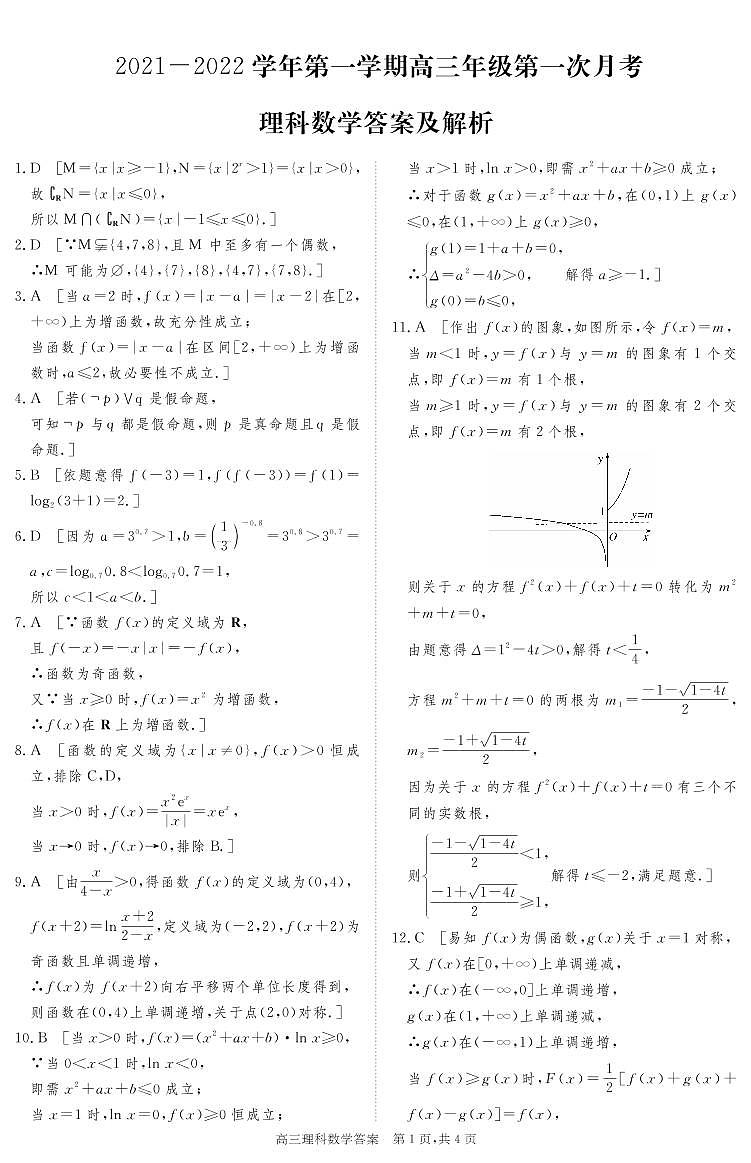 2021－2022 学年第一学期高三年级第一次月考
理科数学答案及解析
1. D [M={x|x≥-1},N={x|2ˣ>1}={x|x>0},
故∁ᴿN={x|x≤0},
所以 M∩(∁ᴿN)={x|-1≤x≤0}.]
2. D [∵M⫋{4,7,8},且 M 中至多有一个偶数,
∴M 可能为∅,{4},{7},{8},{4,7},{7,8}.]
3. A [当 a=2 时,f(x)=|x-a|=|x-2|在[2,
+∞)上为增函数,故充分性成立;
当函数 f(x)=|x-a|在区间[2,+∞)上为增函
数时,a≤2,故必要性不成立.]
4. A [若(¬p)∨q 是假命题,
可知¬p 与q 都是假命题,则 p 是真命题且q 是假
命题.]
5. B [依题意得 f(-3)=1,f(f(-3))=f(1)=
log₂(3+1)=2.]
6. D [因为 a=3^0.7>1,b=(1/3)^-0.8=3^0.8>3^0.7=
a,c=log₀.₇0.8<log₀.₇0.7=1,
所以 c<1<a<b.]
7. A [∵函数 f(x)的定义域为 R,
且 f(-x)=-x|x|=-f(x),
∴函数为奇函数,
又∵当 x≥0 时,f(x)=x² 为增函数,
∴f(x)在 R 上为增函数.]
8. A [函数的定义域为{x|x≠0},f(x)>0 恒成
立,排除 C,D,
当 x>0 时,f(x)=x²eˣ/|x|=xeˣ,
当 x→0 时,f(x)→0,排除 B.]
9. A [由x/(4-x)>0,得函数 f(x)的定义域为(0,4),
f(x+2)=ln (x+2)/(2-x),定义域为(-2,2),f(x+2)为
奇函数且单调递增,
∴f(x)为 f(x+2)向右平移两个单位长度得到,
则函数在(0,4)上单调递增,关于点(2,0)对称.]
10. B [当 x>0 时,f(x)=(x²+ax+b)·ln x≥0,
∵当 0<x<1 时,ln x<0,
即需 x²+ax+b≤0 成立;
当 x=1 时,ln x=0,f(x)≥0 恒成立;
当 x>1 时,ln x>0,即需 x²+ax+b≥0 成立;
∴对于函数 g(x)=x²+ax+b,在(0,1)上 g(x)
≤0,在(1,+∞)上 g(x)≥0,
g(1)=1+a+b=0,
∴{Δ=a²-4b>0, 解得 a≥-1.]
g(0)=b≤0,
11. A [作出 f(x)的图象,如图所示,令 f(x)=m,
当 m<1 时,y=f(x)与 y=m 的图象有 1 个交
点,即 f(x)=m 有 1 个根,
当 m≥1 时,y=f(x)与 y=m 的图象有 2 个交
点,即 f(x)=m 有 2 个根,
y
1
y=m
O x
1
则关于 x 的方程 f²(x)+f(x)+t=0 转化为 m²
+m+t=0,
由题意得 Δ=1²-4t>0,解得 t<1/4,
方程 m²+m+t=0 的两根为 m₁=(-1-√(1-4t))/2,
m₂=(-1+√(1-4t))/2,
因为关于 x 的方程 f²(x)+f(x)+t=0 有三个不
同的实数根,
(-1-√(1-4t))/2<1,
则{ 解得 t≤-2,满足题意.]
(-1+√(1-4t))/2≥1,
12. C [易知 f(x)为偶函数,g(x)关于 x=1 对称,
又 f(x)在[0,+∞)上单调递减,
∴f(x)在(-∞,0]上单调递增,
g(x)在(1,+∞)上单调递减,
∴g(x)在(-∞,1)上单调递增,
当 f(x)≥g(x)时,F(x)=1/2[f(x)+g(x)+
f(x)-g(x)]=f(x),
高三理科数学答案 第 1 页,共 4 页